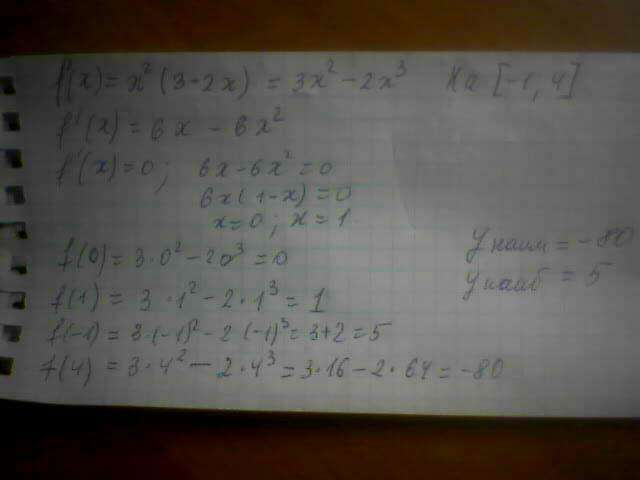 f(x) = x² (3 - 2x) = 3x² - 2x³ на [-1, 4]
f'(x) = 6x - 6x²
f'(x) = 0; 6x - 6x² = 0
6x(1 - x) = 0
x = 0; x = 1
f(0) = 3·0² - 2·0³ = 0
f(1) = 3·1² - 2·1³ = 1
f(-1) = 3·(-1)² - 2·(-1)³ = 3 + 2 = 5
f(4) = 3·4² - 2·4³ = 3·16 - 2·64 = -80
y наим = -80
y наиб = 5